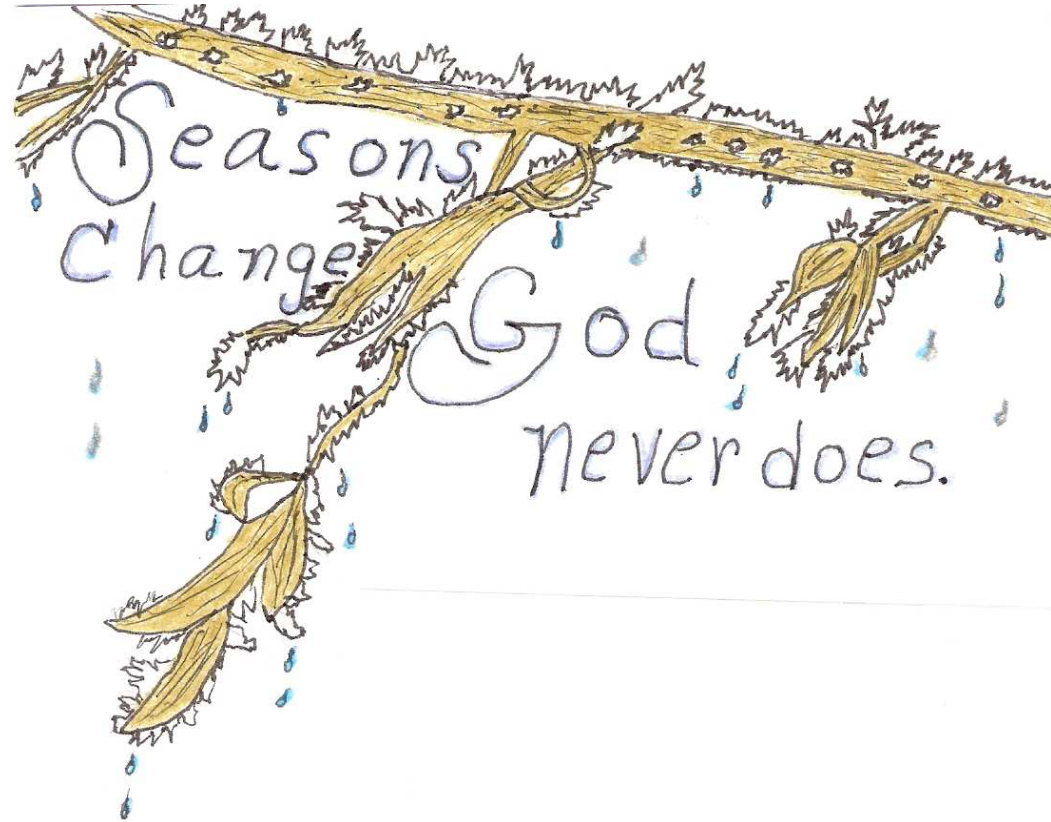 Seasons
Change
God
never does.